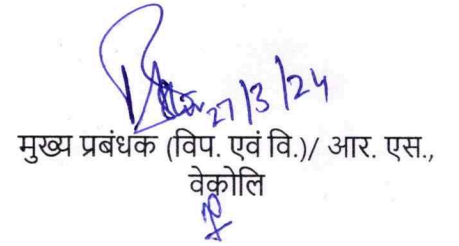 27/3/24
मुख्य प्रबंधक (विप. एवं वि.)/ आर. एस.,
वेकोलि